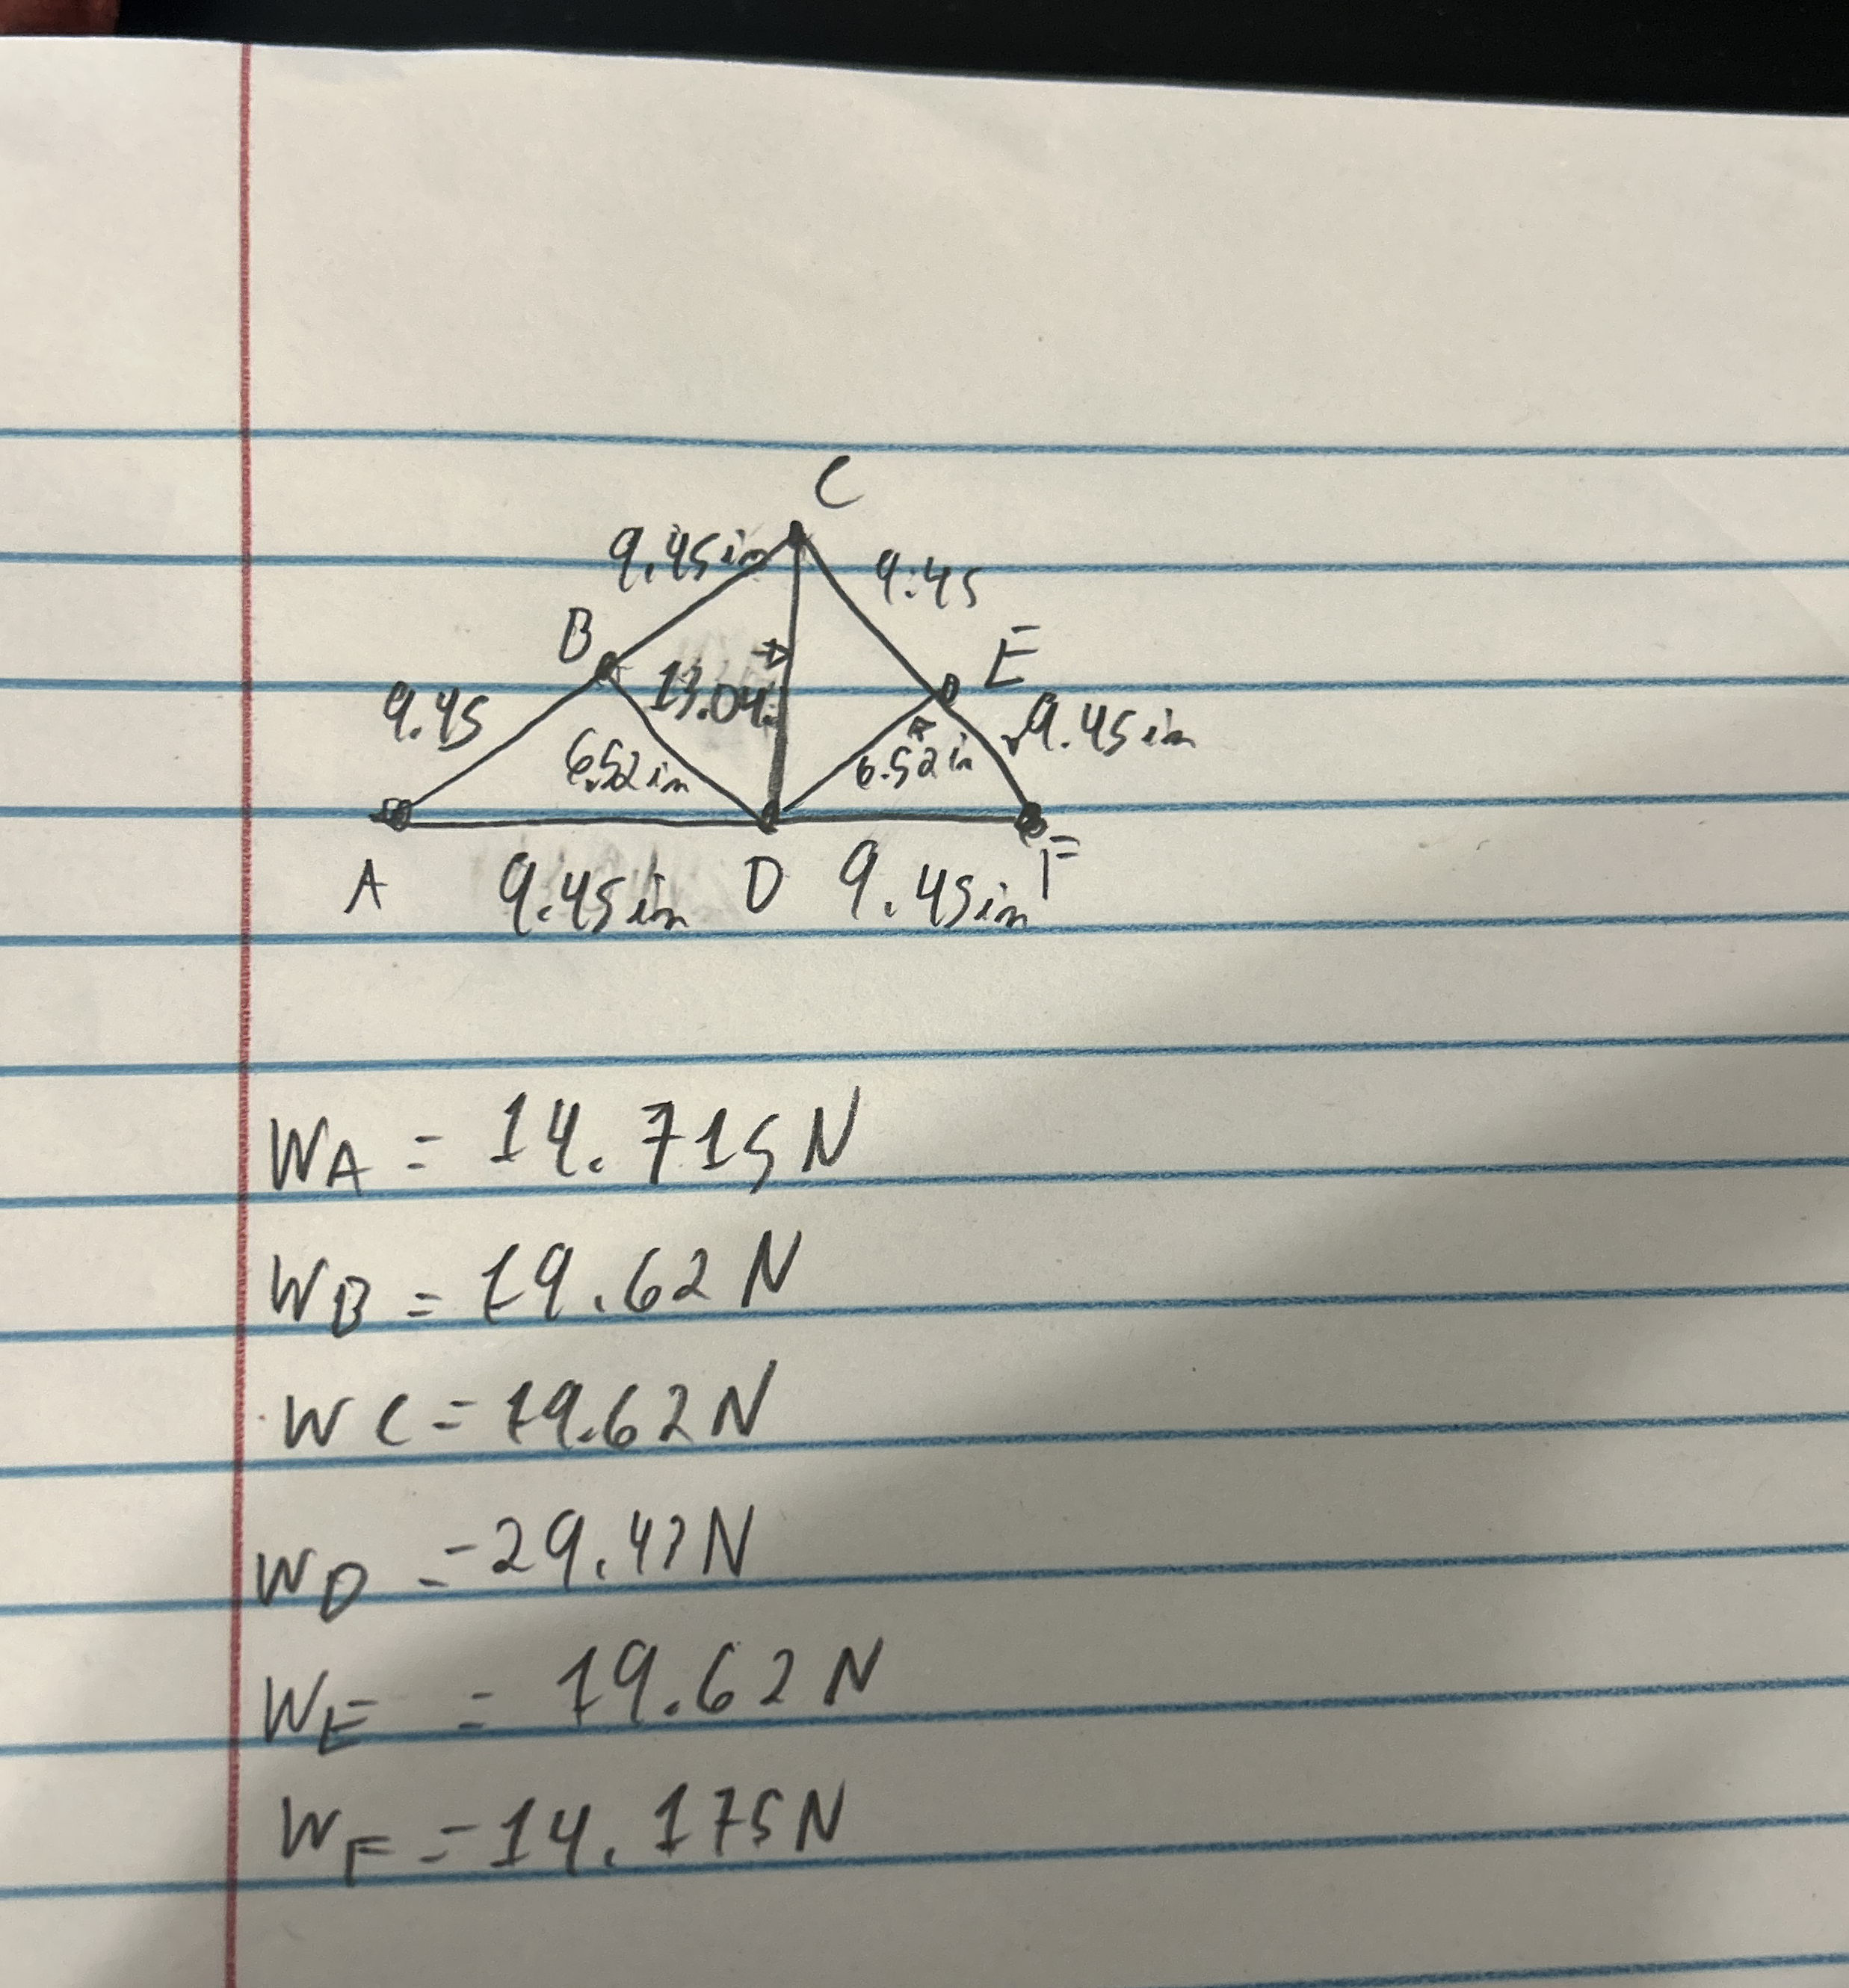 C
9.45in
9.45
B
E
13.04
9.45
9.45in
6.52in
6.52in
A
9.45in
D
9.45in
F
WA = 14.715N
WB = 19.62N
WC = 19.62N
WD = 29.43N
WE = 19.62N
WF = 14.175N